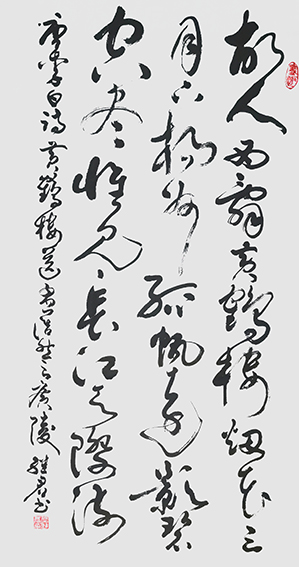 故人西辭黃鶴樓烟花三
月下揚州孤帆遠影碧
空盡惟見長江天際流
唐李白詩黃鶴樓送孟浩然之廣陵 書